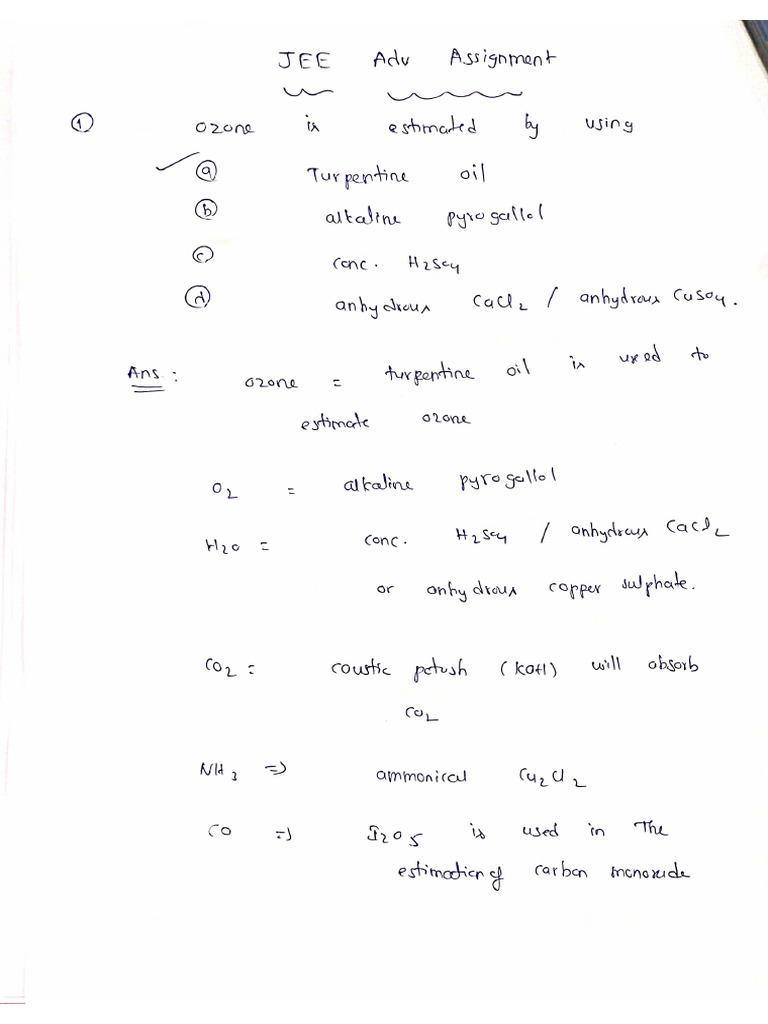 JEE Adv Assignment
① ozone is estimated by using
ⓐ Turpentine oil
ⓑ alkaline pyrogallol
ⓒ conc. H2SO4
ⓓ anhydrous CaCl2 / anhydrous CuSO4.
Ans : ozone = turpentine oil is used to
estimate ozone
O2 = alkaline pyrogallol
H2O = conc. H2SO4 / anhydrous CaCl2
or anhydrous copper sulphate.
CO2 = caustic potash (KOH) will absorb
CO2
NH3 => ammonical Cu2Cl2
CO => I2O5 is used in The
estimation of carbon monoxide